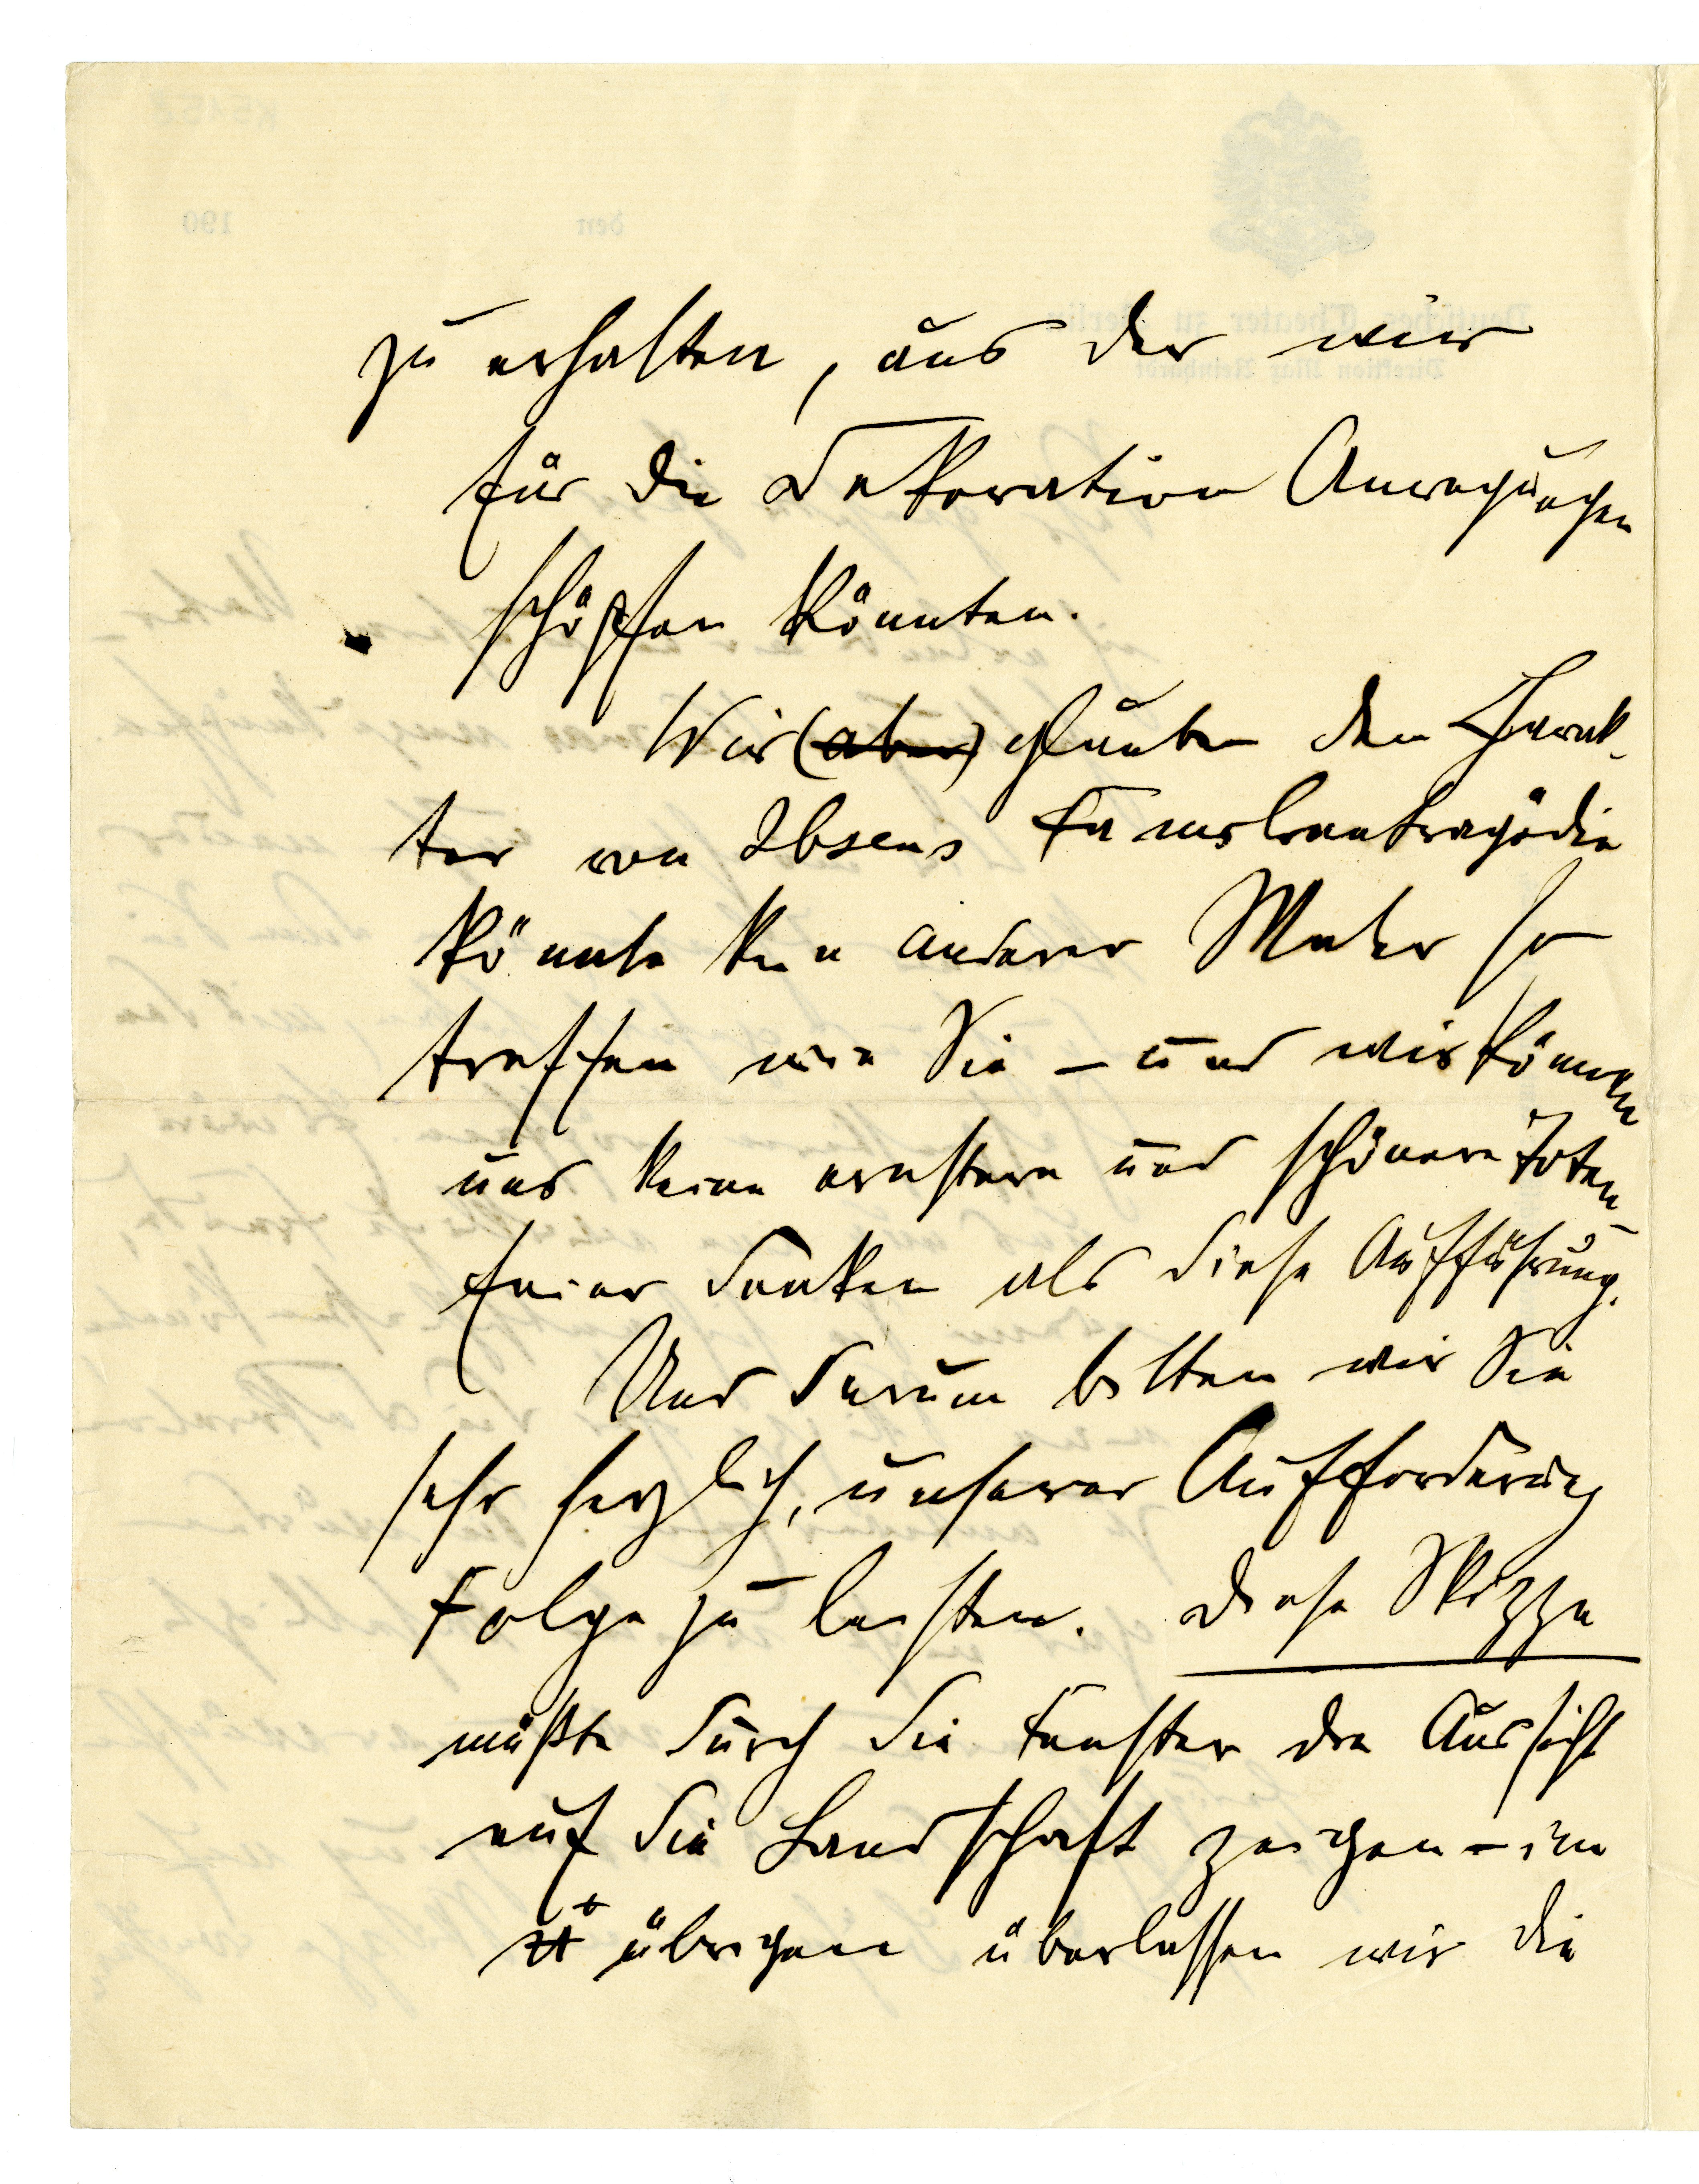 zu erhalten, aus der wir
für die Dekoration Anregungen
schöpfen könnten.
Wir (aber) glauben den Charak-
ter von Ibsens Familientragödie
könnte kein anderer Maler so
treffen wie Sie – und wir können
uns keine ernstere und schönere Toten-
feier denken als diese Aufführung.
Und darum bitten wir Sie
sehr herzlich, unserer Aufforderung
Folge zu leisten. Diese Skizze
müßte durch die Fenster die Aussicht
auf die Landschaft zeigen – im
übrigen überlassen wir die